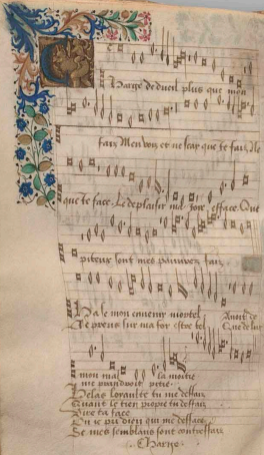 Harge de dueil plus que mon
faiz Men voiz et ne scay que te faiz Ne
que te face Le desplaisir ma joye efface Que
piteux sont mes pauvres faiz
Ha le mon ennemy mortel
Et prens sur ma foy estre tel
Avoit de
Que de luy
mon mal la moitie
me prendroit pitie
Helas loraulte tu me deffais
Quant le tien propre tu deffaiz
Vive ta face
On je pri dieu qui me defface
Se mes semblans sont contreffaiz
Charge